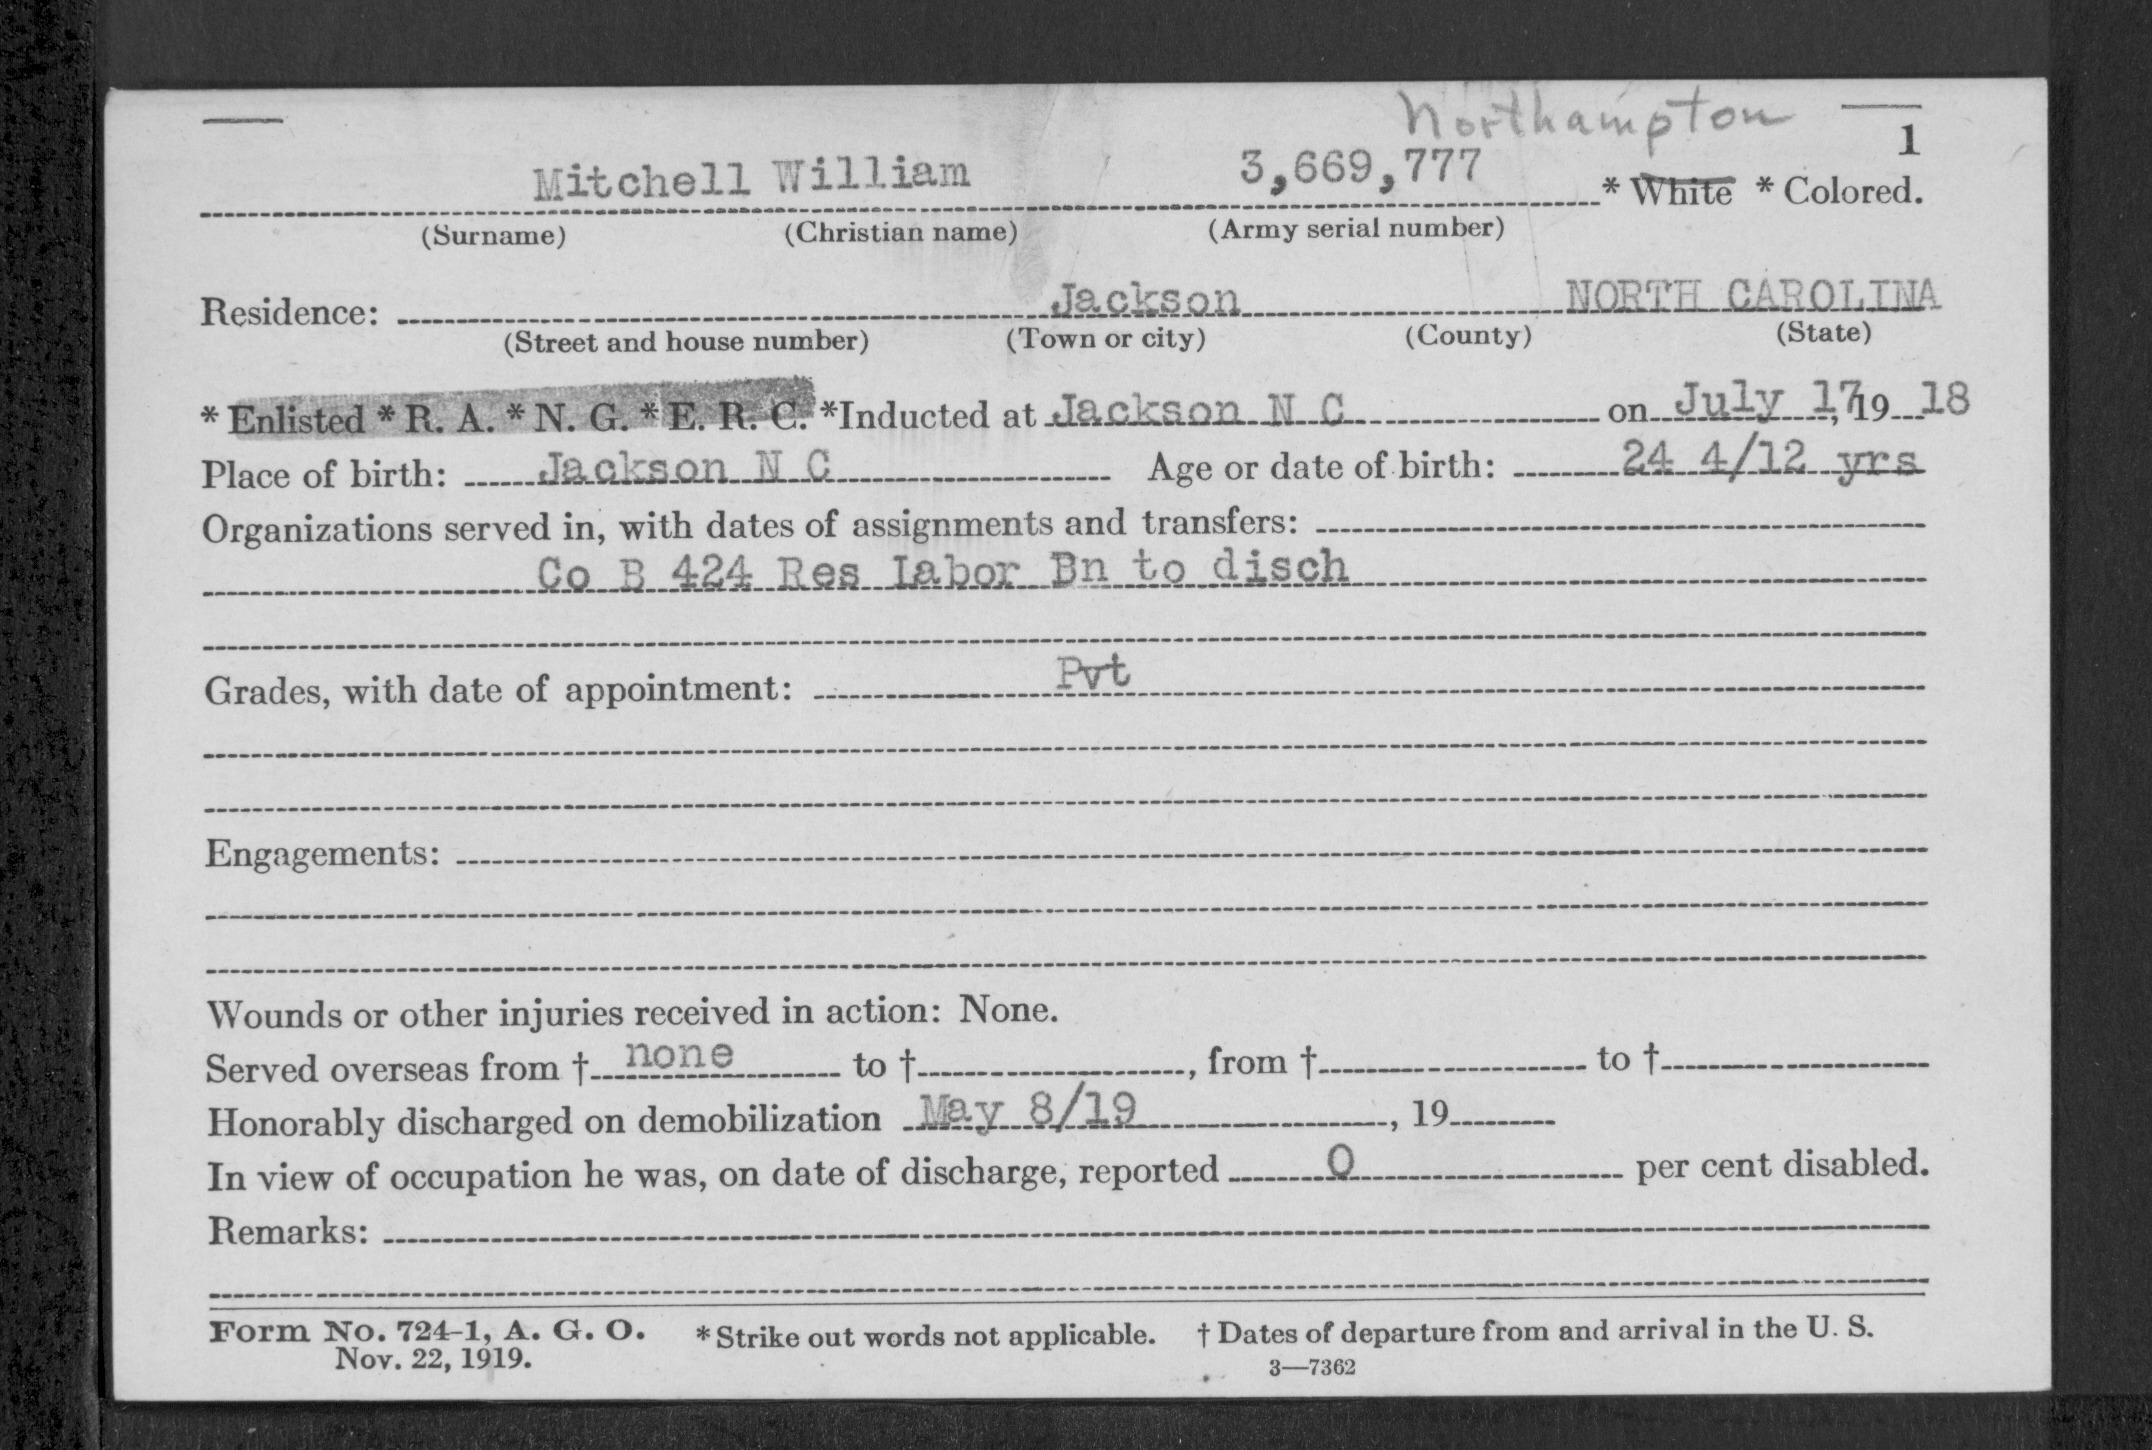 Northampton
1
Mitchell William 3,669,777 * White * Colored.
(Surname) (Christian name) (Army serial number)
Residence: Jackson NORTH CAROLINA
(Street and house number) (Town or city) (County) (State)
* Enlisted * R. A. * N. G. * E. R. C. *Inducted at Jackson N C on July 17, 19 18
Place of birth: Jackson N C Age or date of birth: 24 4/12 yrs
Organizations served in, with dates of assignments and transfers:
Co B 424 Res Labor Bn to disch
Grades, with date of appointment: Pvt
Engagements:
Wounds or other injuries received in action: None.
Served overseas from † none to †, from † to †
Honorably discharged on demobilization May 8/19, 19
In view of occupation he was, on date of discharge, reported 0 per cent disabled.
Remarks:
Form No. 724-1, A. G. O. * Strike out words not applicable. † Dates of departure from and arrival in the U. S.
Nov. 22, 1919. 3—7362